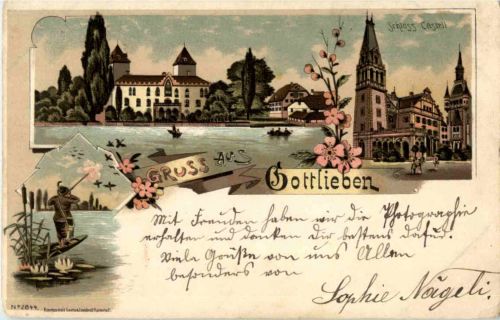 Schloss Castell
GRUSS AUS
Gottlieben
Mit Freuden haben wir die Photographie
erhalten und danken Dir bestens dafür.
Viele Grüße von uns Allen
besonders von
Sophie Nägeli.